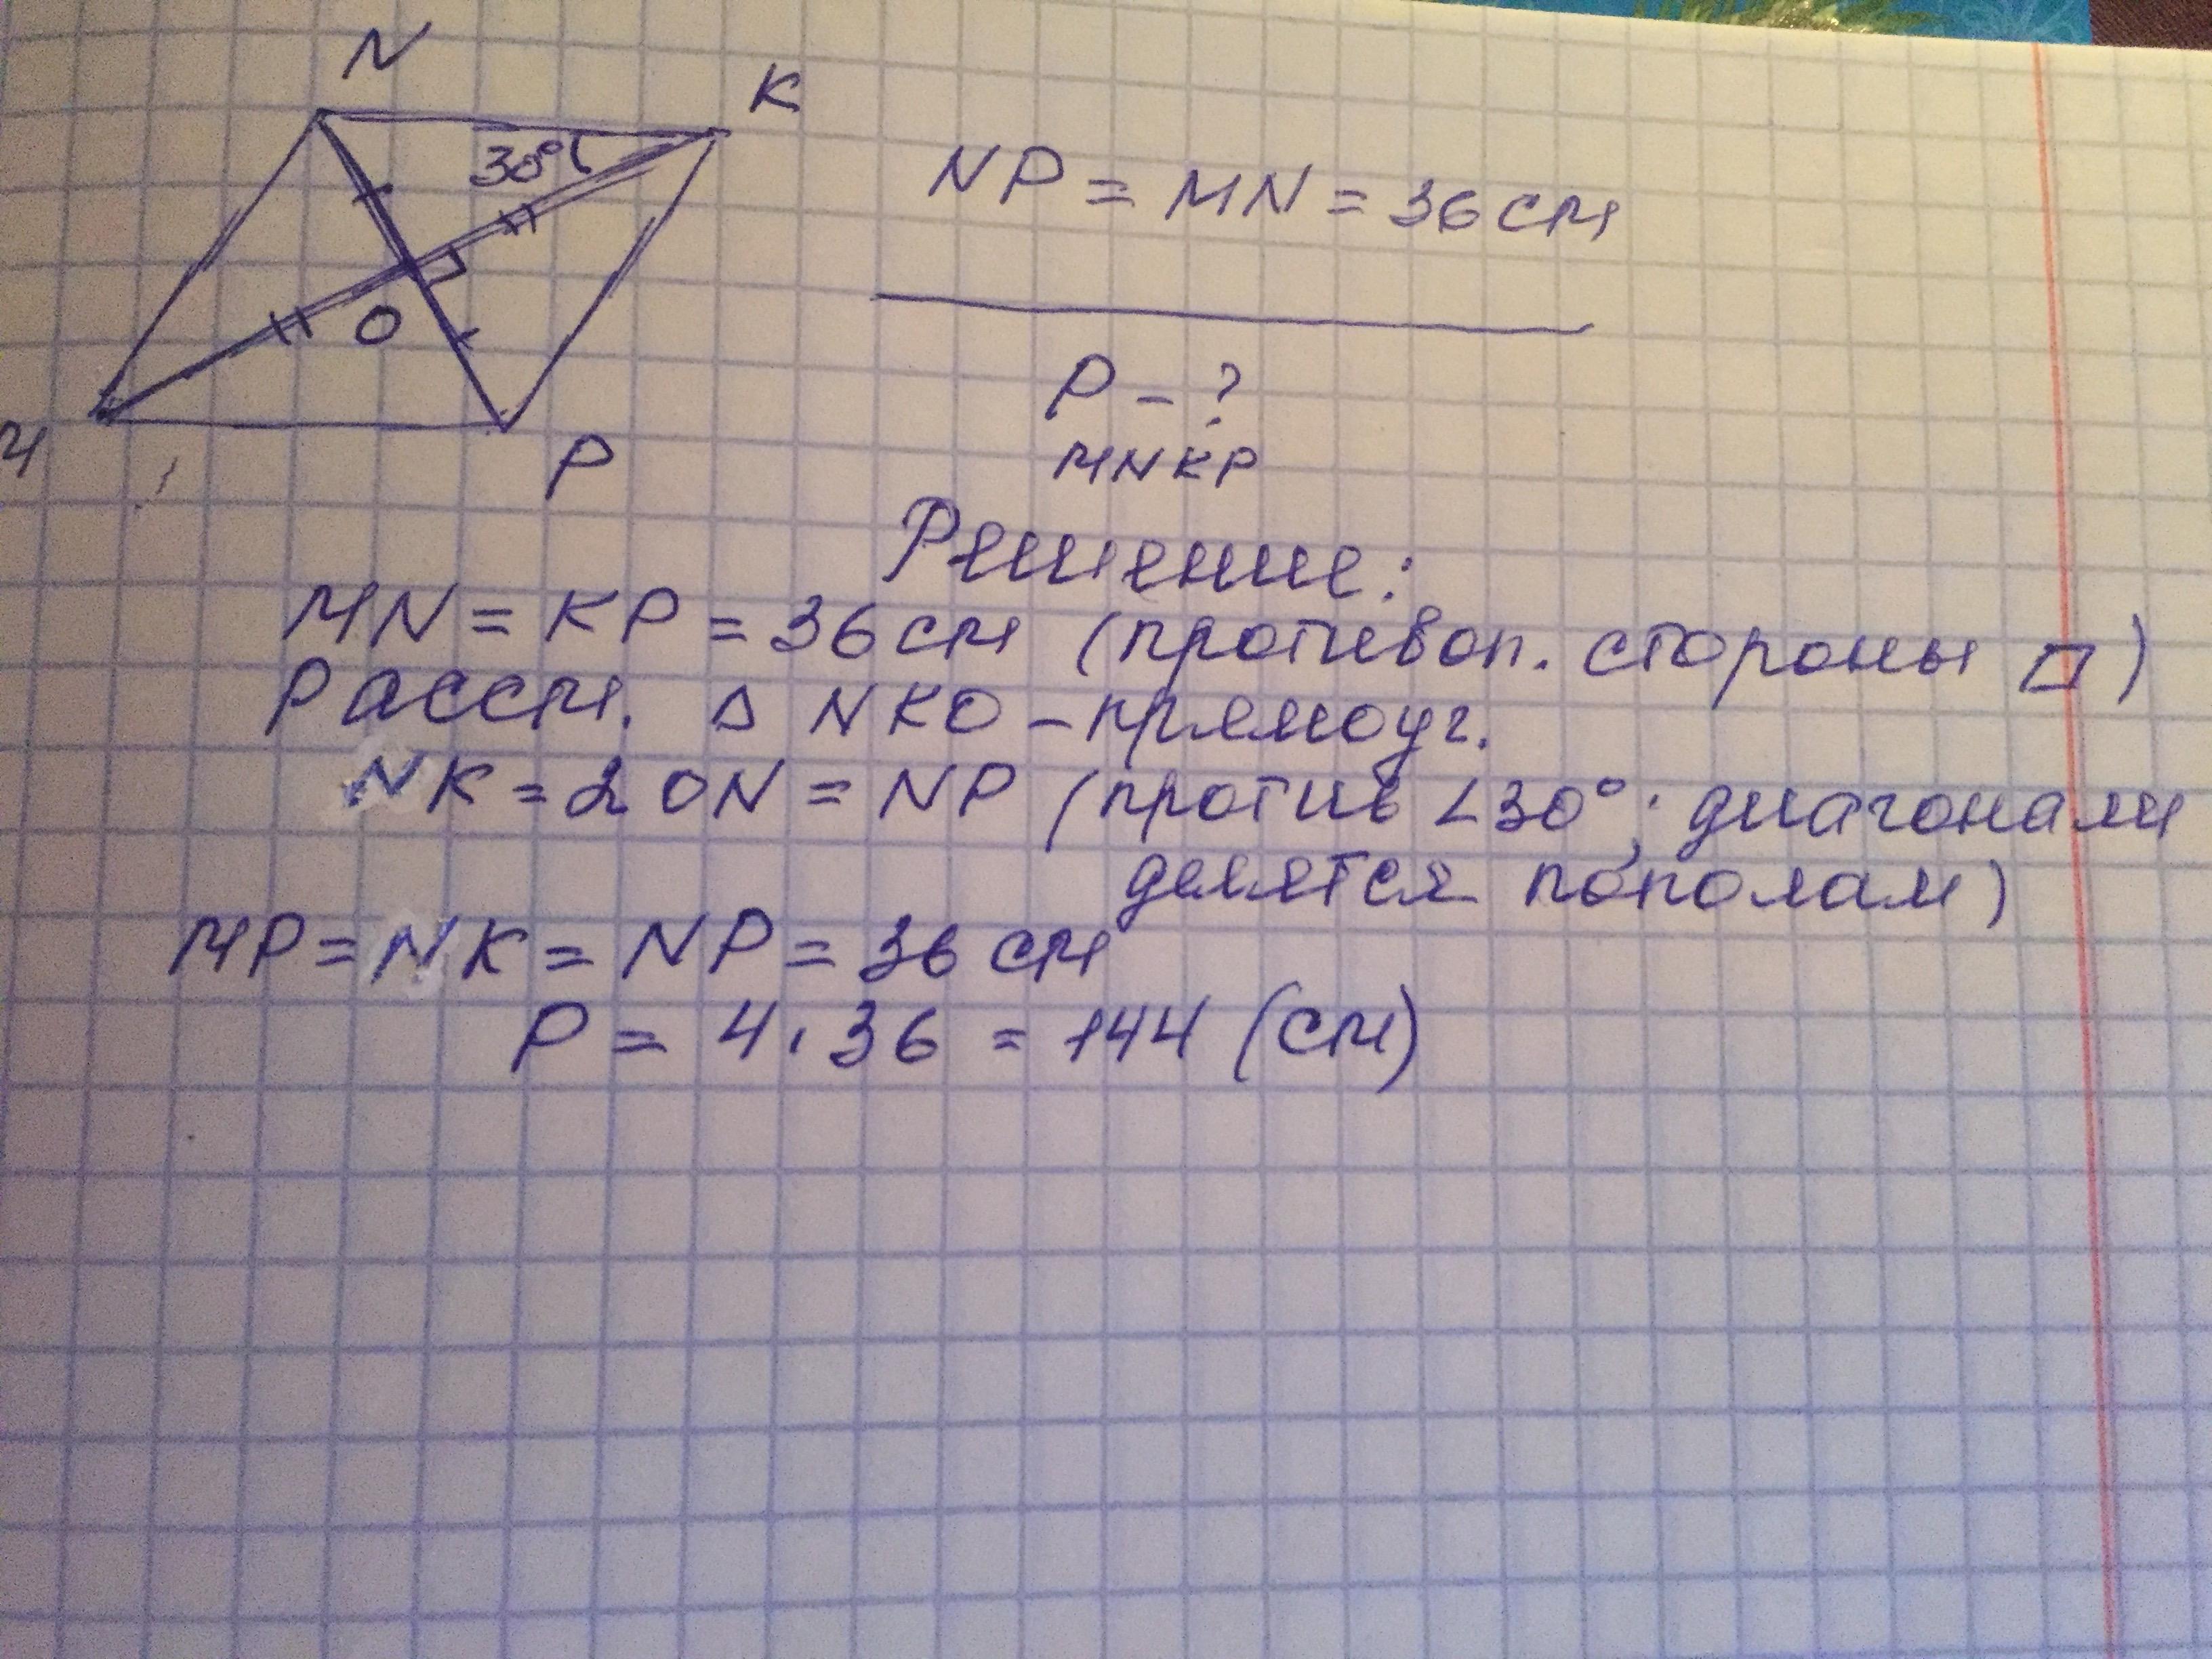 N
K
30°
O
M
P
NP = MN = 36 см
P - ?
MNKP
Решение:
MN = KP = 36 см (противоп. стороны ▱)
Рассм. △ NKO - прямоуг.
NK = 2 ON = NP (против ∠30°; диагонали
делятся пополам)
MP = NK = NP = 36 см
P = 4 · 36 = 144 (см)